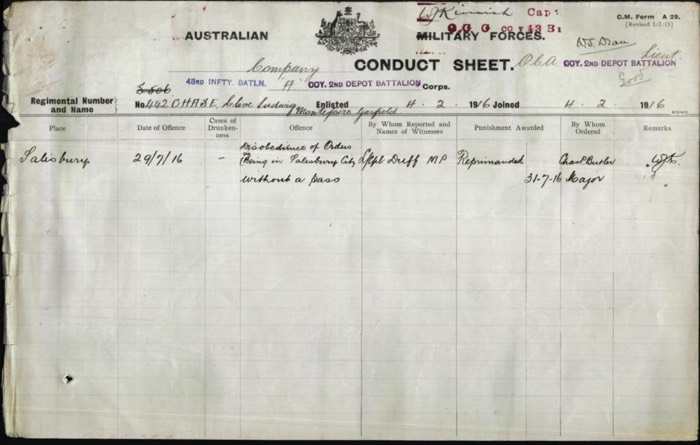 Capt
C.M. Form A 29.
[Revised 1/2/15]
AUSTRALIAN
MILITARY FORCES.
O C G COY 43 Bn
Company
CONDUCT SHEET.
COY. 2ND DEPOT BATTALION
Lieut
Good
43RD INFTY. BATLN. "A" COY. 2ND DEPOT BATTALION Corps.
Regimental Number and Name
No. 442 CHASE, Steve Ludwig Montefiore Garfield Enlisted 4 . 2 . 1916 Joined 4 . 2 . 1916
Place
Date of Offence
Cases of Drunken-ness
Offence
By Whom Reported and Names of Witnesses
Punishment Awarded
By Whom Ordered
Remarks
Salisbury
29/7/16
–
Disobedience of Orders
Being in Salisbury City
without a pass
L/Cpl Driff MP
Reprimanded
31-7-16
Butler
Major